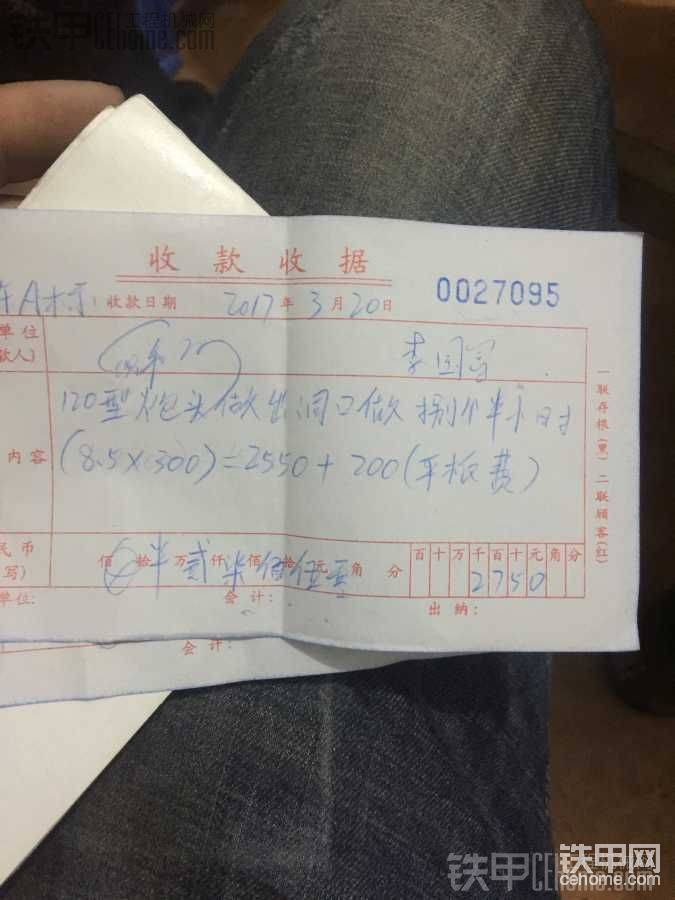 铁甲 CEhome.com 工程机械网
收款收据
收款日期 2017年3月20日 0027095
单位
款人)
120型炮头做 出洞口做 捌个半小时
内容 (8.5×300)=2550+200(平板费)
民币
写) 佰 拾 万 贰仟 柒佰 伍拾 元 角 分 百十万千百十元角分
2750
单位: 会计: 出纳:
会计:
一联存根(黑) 二联顾客(红)
铁甲网
cehome.com